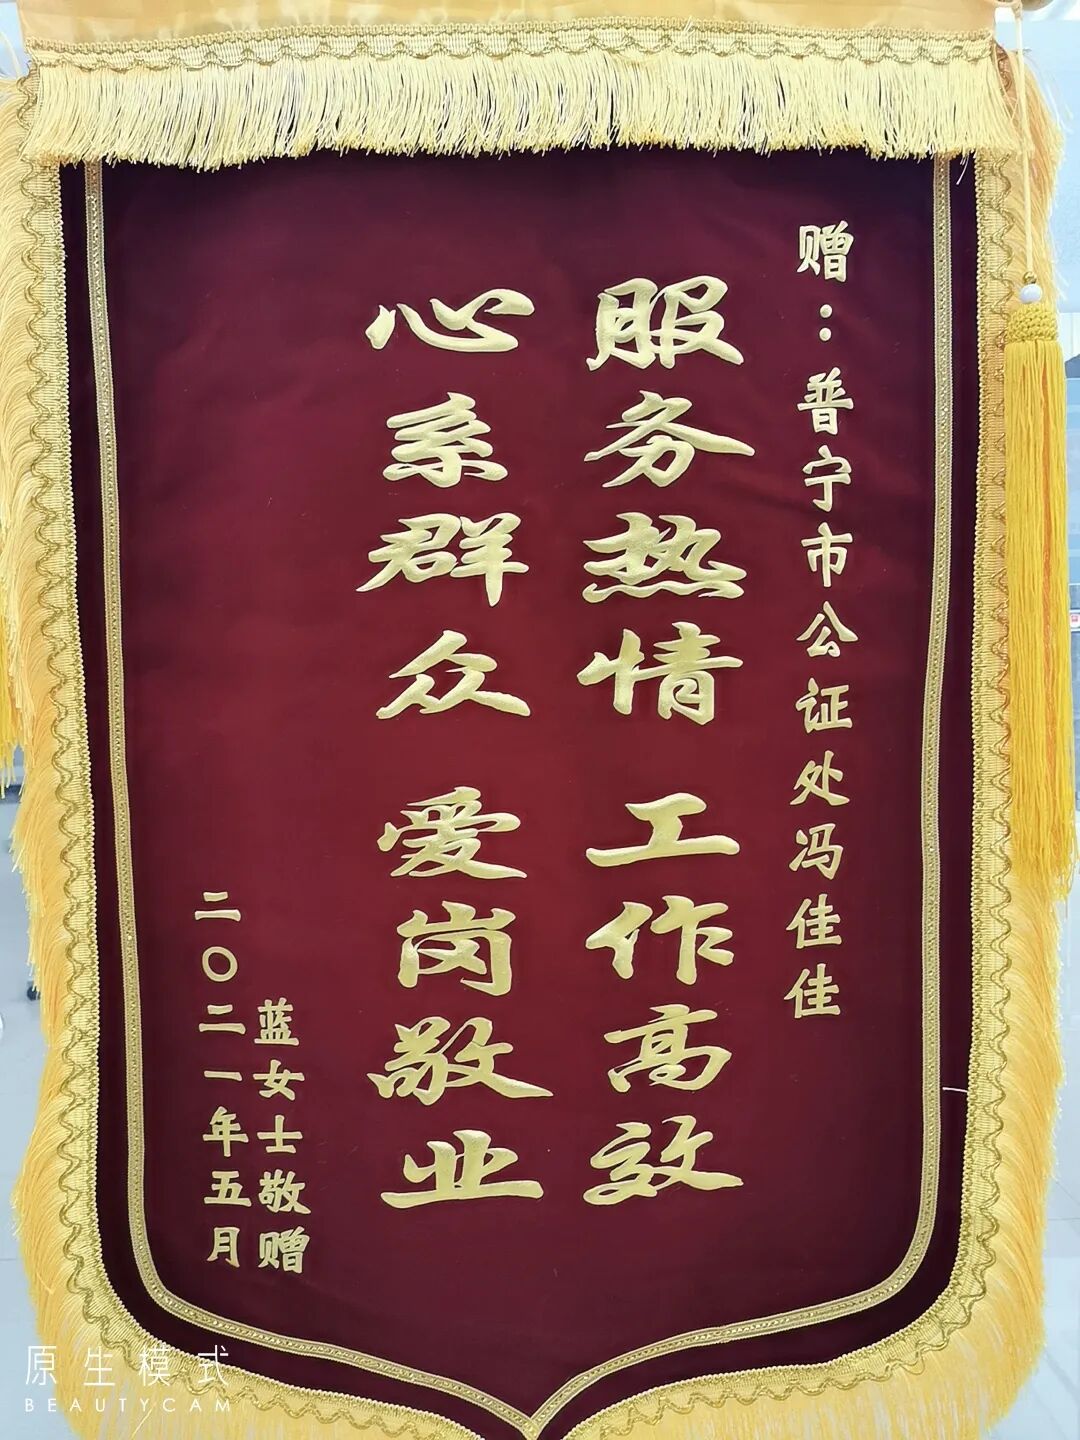 赠：普宁市公证处冯佳佳
服务热情 工作高效
心系群众 爱岗敬业
蓝女士敬赠
二〇二一年五月
原生模式
BEAUTYCAM